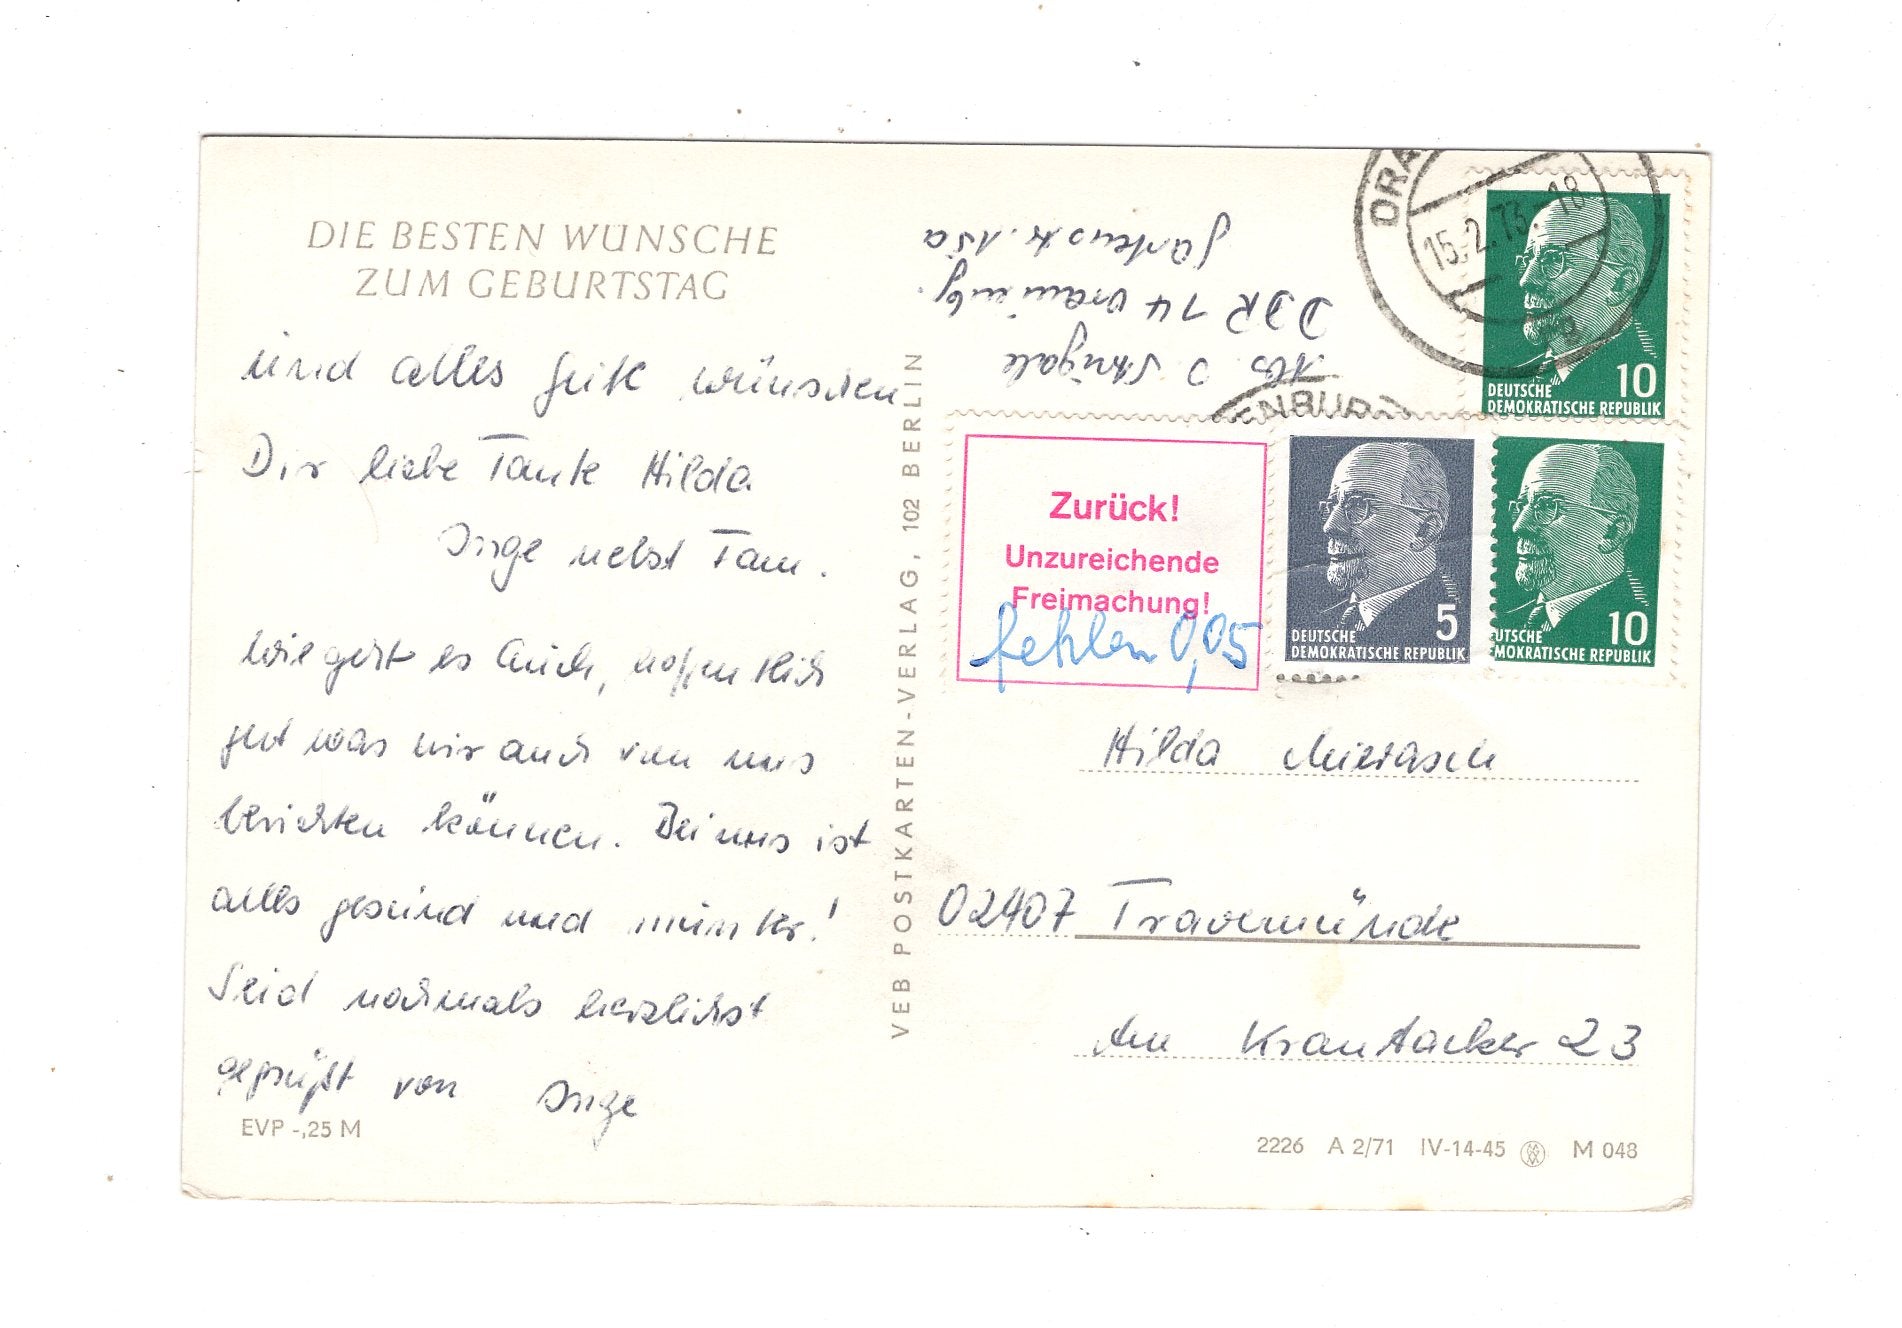 DIE BESTEN WÜNSCHE
ZUM GEBURTSTAG
und alles Gute wünschen
Dir liebe Tante Hilda
Inge nebst Fam.
Wie geht es Euch, hoffentlich
gut was wir auch von uns
berichten können. Bei uns ist
alles gesund und munter!
Seid nochmals herzlichst
gegrüßt von Inge
EVP -,25 M
VEB POSTKARTEN-VERLAG, 102 BERLIN
Abs.
DDR 14
Gartenstr. 15a
ORA
15.2.73.-18
ENBURG
10
DEUTSCHE
DEMOKRATISCHE REPUBLIK
Zurück!
Unzureichende
Freimachung!
fehlen 0,05
5
DEUTSCHE
DEMOKRATISCHE REPUBLIK
10
UTSCHE
MOKRATISCHE REPUBLIK
Hilda
02407 Travemünde
Am Krautacker 23
2226 A 2/71 IV-14-45 M 048